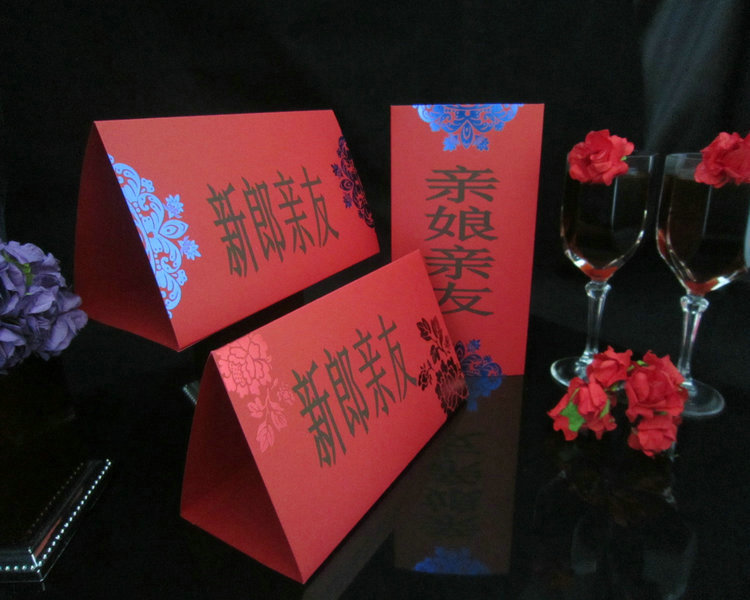 新郎亲友
亲娘亲友
新郎亲友